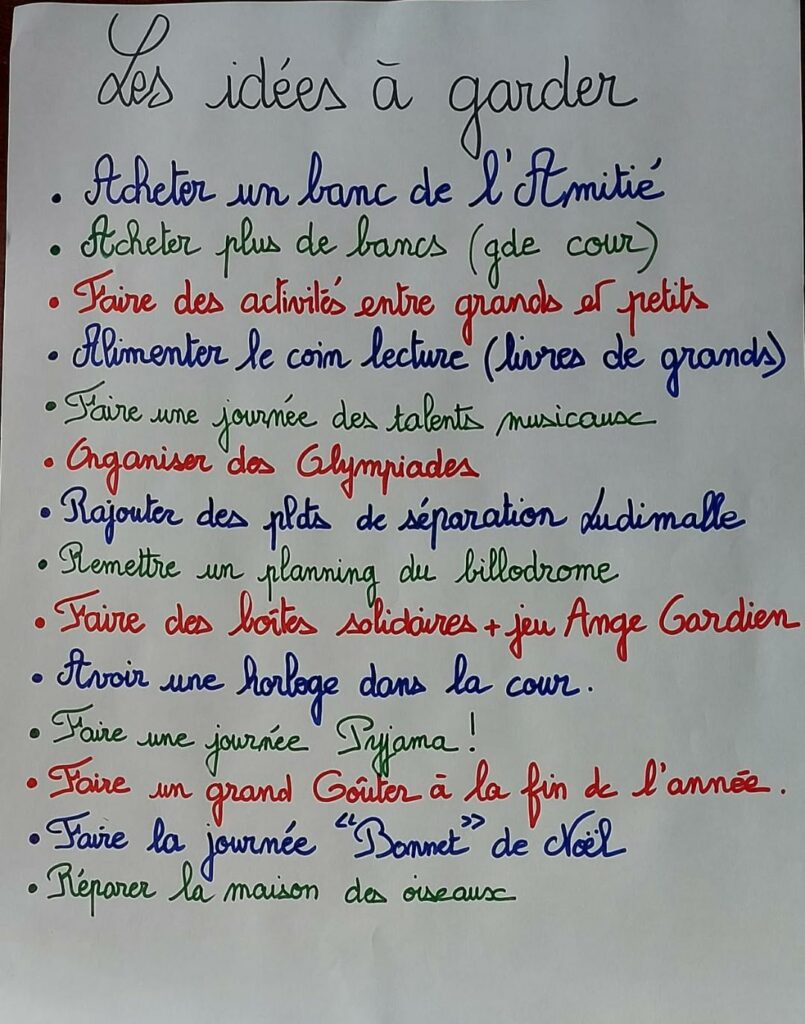 Les idées à garder
• Acheter un banc de l'Amitié
• Acheter plus de bancs (gde cour)
• Faire des activités entre grands et petits
• Alimenter le coin lecture (livres de grands)
• Faire une journée des talents musicaux
• Organiser des Olympiades
• Rajouter des plots de séparation Ludimalle
• Remettre un planning du billodrome
• Faire des boîtes solidaires + jeu Ange Gardien
• Avoir une horloge dans la cour.
• Faire une journée Pyjama !
• Faire un grand Goûter à la fin de l'année.
• Faire la journée "Bonnet" de Noël
• Réparer la maison des oiseaux